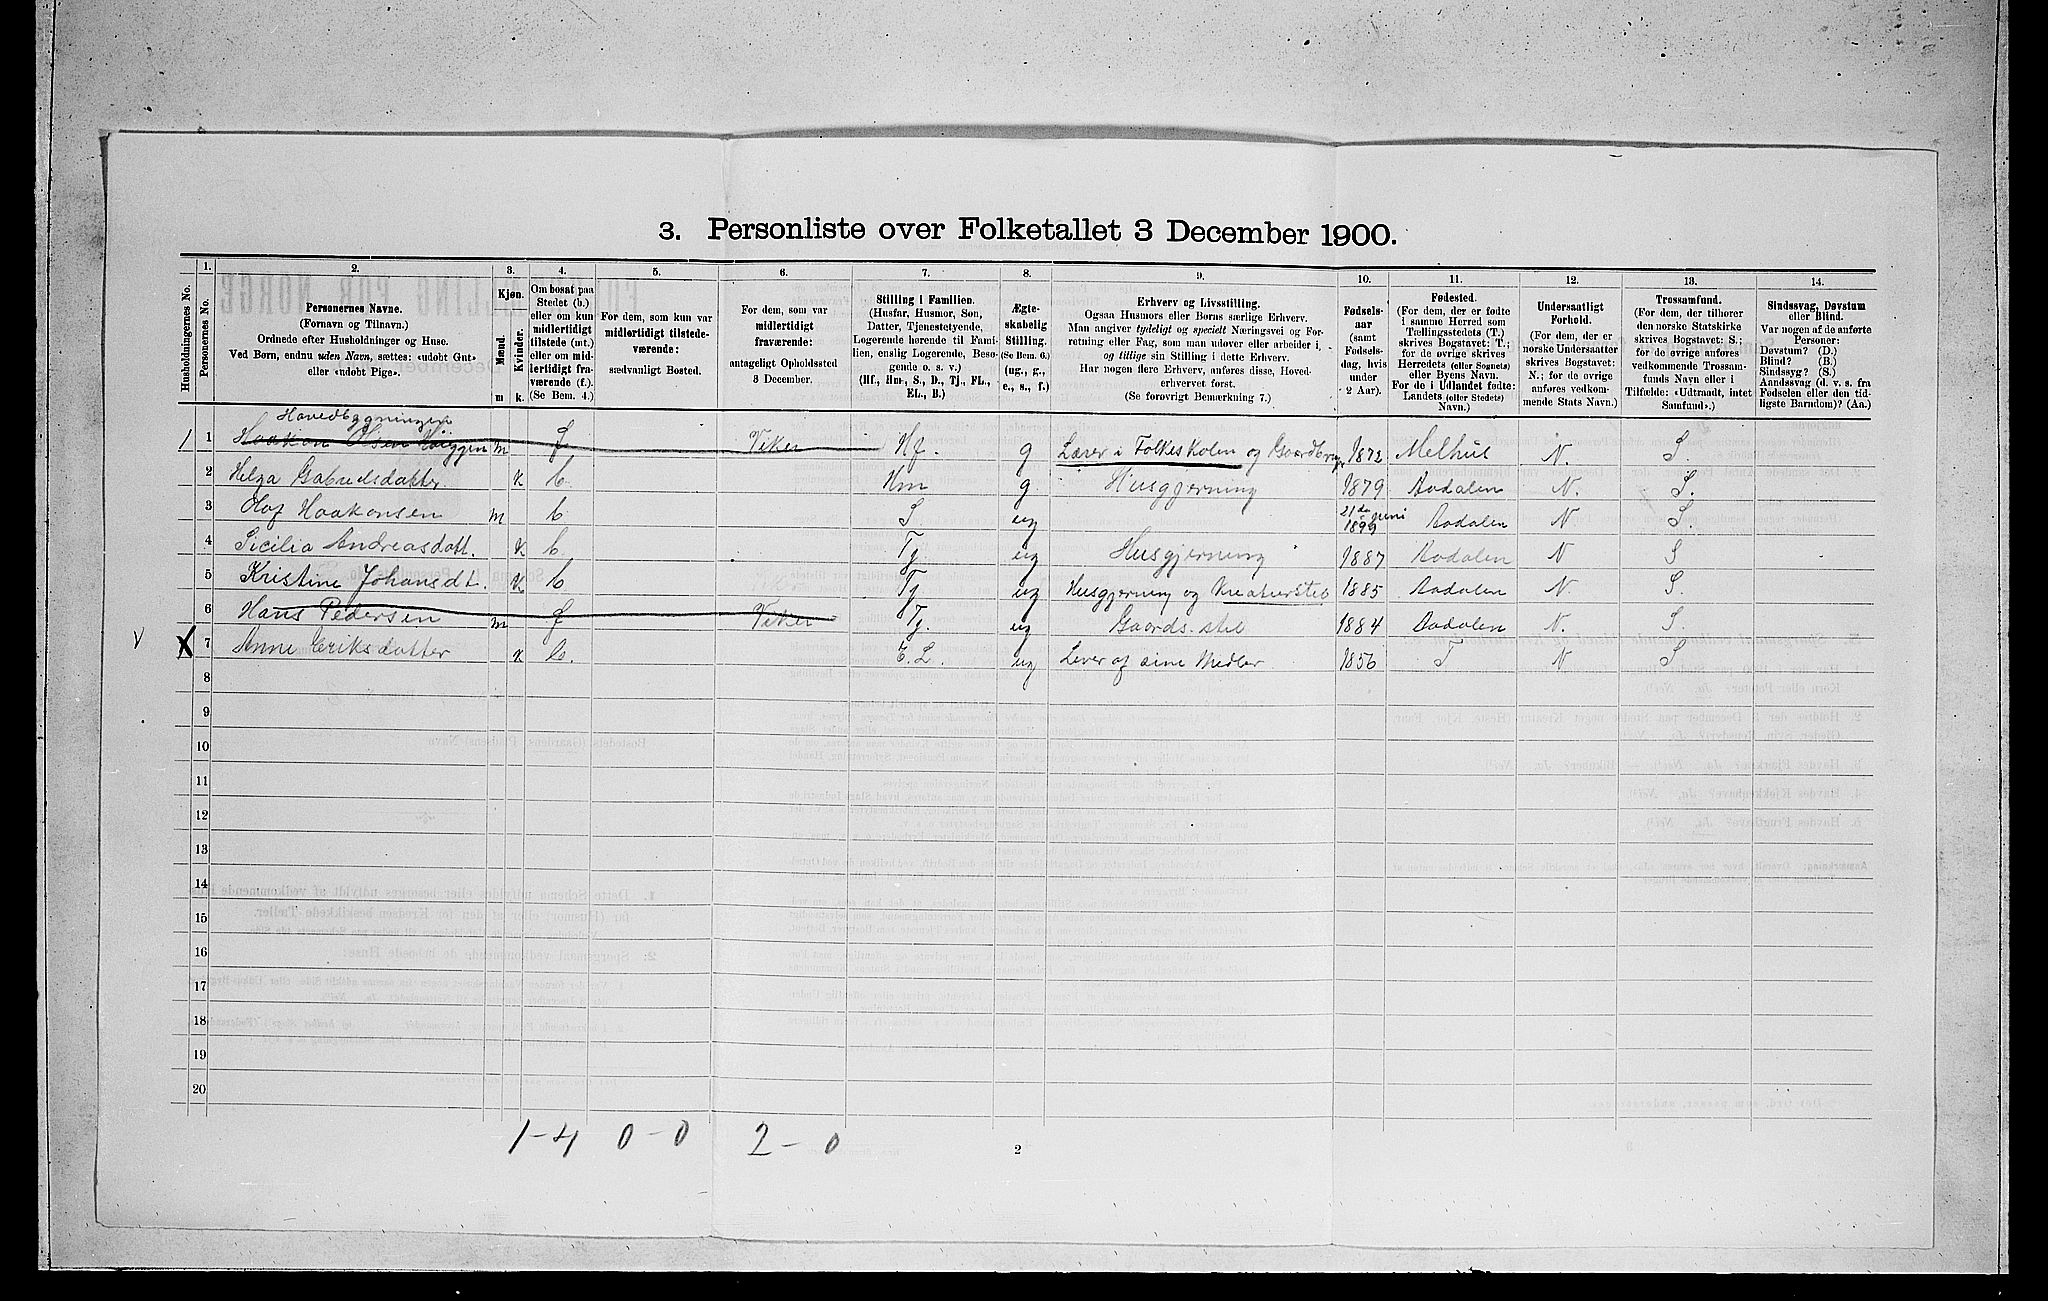 3. Personliste over Folketallet 3 December 1900.
1. 2. 3. 4. 5. 6. 7. 8. 9. 10. 11. 12. 13. 14.
Husholdningernes No.
Personernes No.
Personernes Navne.
(Fornavn og Tilnavn.)
Ordnede efter Husholdninger og Huse.
Ved Børn, endnu uden Navn, sættes: «udobt Gut»
eller «udobt Pige».
Kjøn.
Mænd. Kvinder.
m k.
Om bosat paa
Stedet (b.)
eller om kun
midlertidigt
tilstede (mt.)
eller om mid-
lertidigt fra-
værende (f.)
(Se Bem. 4.)
For dem, som kun var
midlertidigt tilstede-
værende:
sædvanligt Bosted.
For dem, som var
midlertidigt
fraværende:
antageligt Opholdssted
3 December.
Stilling i Familien.
(Husfar, Husmor, Søn,
Datter, Tjenestetyende,
Logerende hørende til Fami-
lien, enslig Logerende, Besø-
gende o. s. v.)
(Hf., Hm., S., D., Tj., FL.,
EL., B.)
Ægte-
skabelig
Stilling.
(Se Bem. 6.)
(ug., g.,
e., s., f.)
Erhverv og Livsstilling.
Ogsaa Husmors eller Børns særlige Erhverv.
Man angiver tydeligt og specielt Næringsvei og For-
retning eller Fag, som man udover eller arbeider i,
og tillige sin Stilling i dette Erhverv.
Har nogen flere Erhverv, anføres disse, Hoved-
erhvervet først.
(Se forøvrigt Bemærkning 7.)
Fødsels-
aar
(samt
Fødsels-
dag, hvis
under
2 Aar).
Fødested.
(For dem, der er fødte
i samme Herred som
Tællingsstedets (T.)
skrives Bogstavet: T.;
for de øvrige skrives
Herredets (eller Sognets)
eller Byens Navn.
For de i Udlandet fødte:
Landets (eller Stedets)
Navn.)
Undersaatligt
Forhold.
(For dem, der er
norske Undersaatter
skrives Bogstavet:
N.; for de øvrige
anføres vedkom-
mende Stats Navn.)
Trossamfund.
(For dem, der tilhører
den norske Statskirke
skrives Bogstavet: S.;
for de øvrige anføres
vedkommende Trossam-
funds Navn eller i
Tilfælde: «Udtraadt, intet
Samfund».)
Sindssvag, Døvstum
eller Blind.
Var nogen af de anførte
Personer:
Døvstum? (D.)
Blind? (B.)
Sindssyg? (S.)
Aandssvag (d. v. s. fra
Fødselen eller den tid-
ligste Barndom)? (Aa.)
Hovedbygningen
1 Haakon Olsen m f Viker Hf. g Lærer i Folkeskolen og Gaardbruger 1872 Melhus N. S.
2 Helga Gabrielsdatter. k b. Hm g. Husgjerning 1879 Aadalen N. S.
3 Olaf Haakonsen m b S ug 21de Juni 1899 Aadalen N S.
4 Sicilia Andreasdatt. k b. Tj. ug Husgjerning 1887 Aadalen N S
5 Kristine Johansdt. k b Tj ug Husgjerning og Kreaturstel 1885 Aadalen N. S.
6 Hans Pedersen m f Viker Tj. ug Gaards. stel 1884 Aadalen N. S.
V X 7 Anne Eriksdatter k b. E.L. ug Lever af sine Midler 1856 T N S
8
9
10
11
12
13
14
15
16
17
18
19
20
1-4 0-0 2-0
2